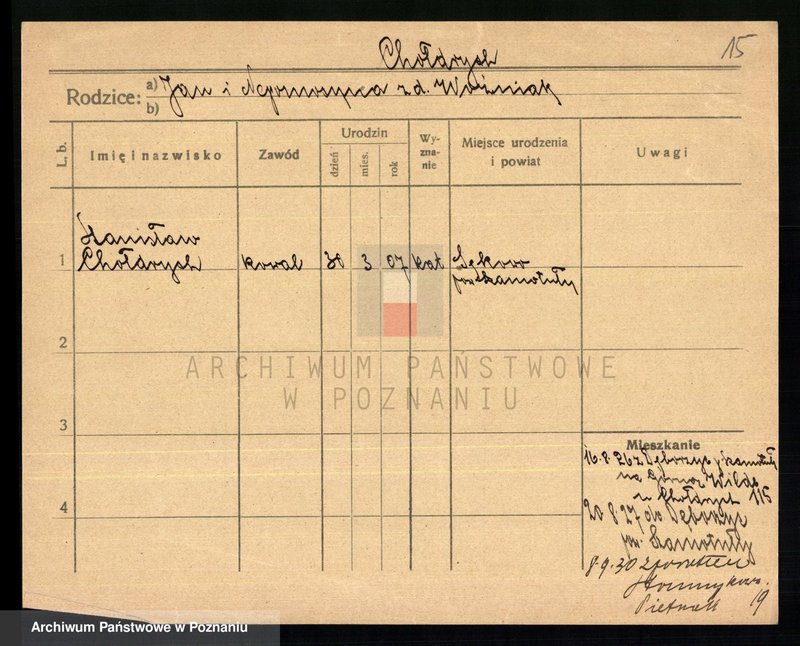 Chołdrych
15
Rodzice: a) Jan i Nepomosyna z d. Woźniak
b)
L. b.
Imię i nazwisko
Zawód
Urodzin
dzień
mies.
rok
Wy-
zna-
nie
Miejsce urodzenia
i powiat
Uwagi
1
Stanisław
Chołdrych
kowal
30
3
07
kat
Sękowo
pow Szamotuły
2
3
4
ARCHIWUM PAŃSTWOWE
W POZNANIU
Mieszkanie
16.8.26 z Dęborzyc p Szamotuły
na Górna Wilda
u Chołdrych 115
20 8.27 do Dęborzyc
pow. Szamotuły
8.9.30
19
Archiwum Państwowe w Poznaniu